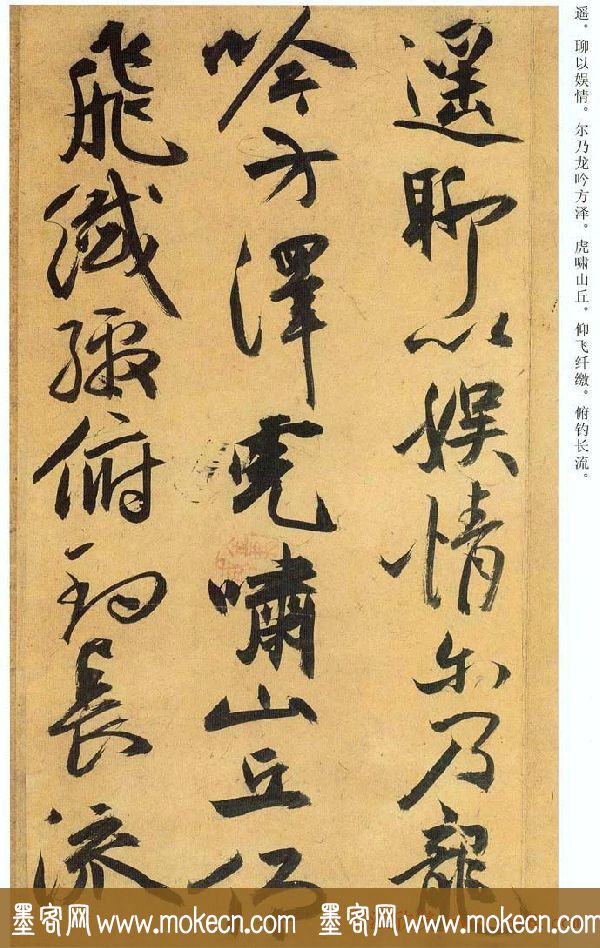 遥。聊以娱情。尔乃龙吟方泽。虎啸山丘。仰飞纤缴。俯钓长流。
遥聊以娱情尔乃龍
吟方澤虎嘯山丘仰
飛纖繳俯釣長流
墨客网 www.mokecn.com 墨客网 www.mokecn.com